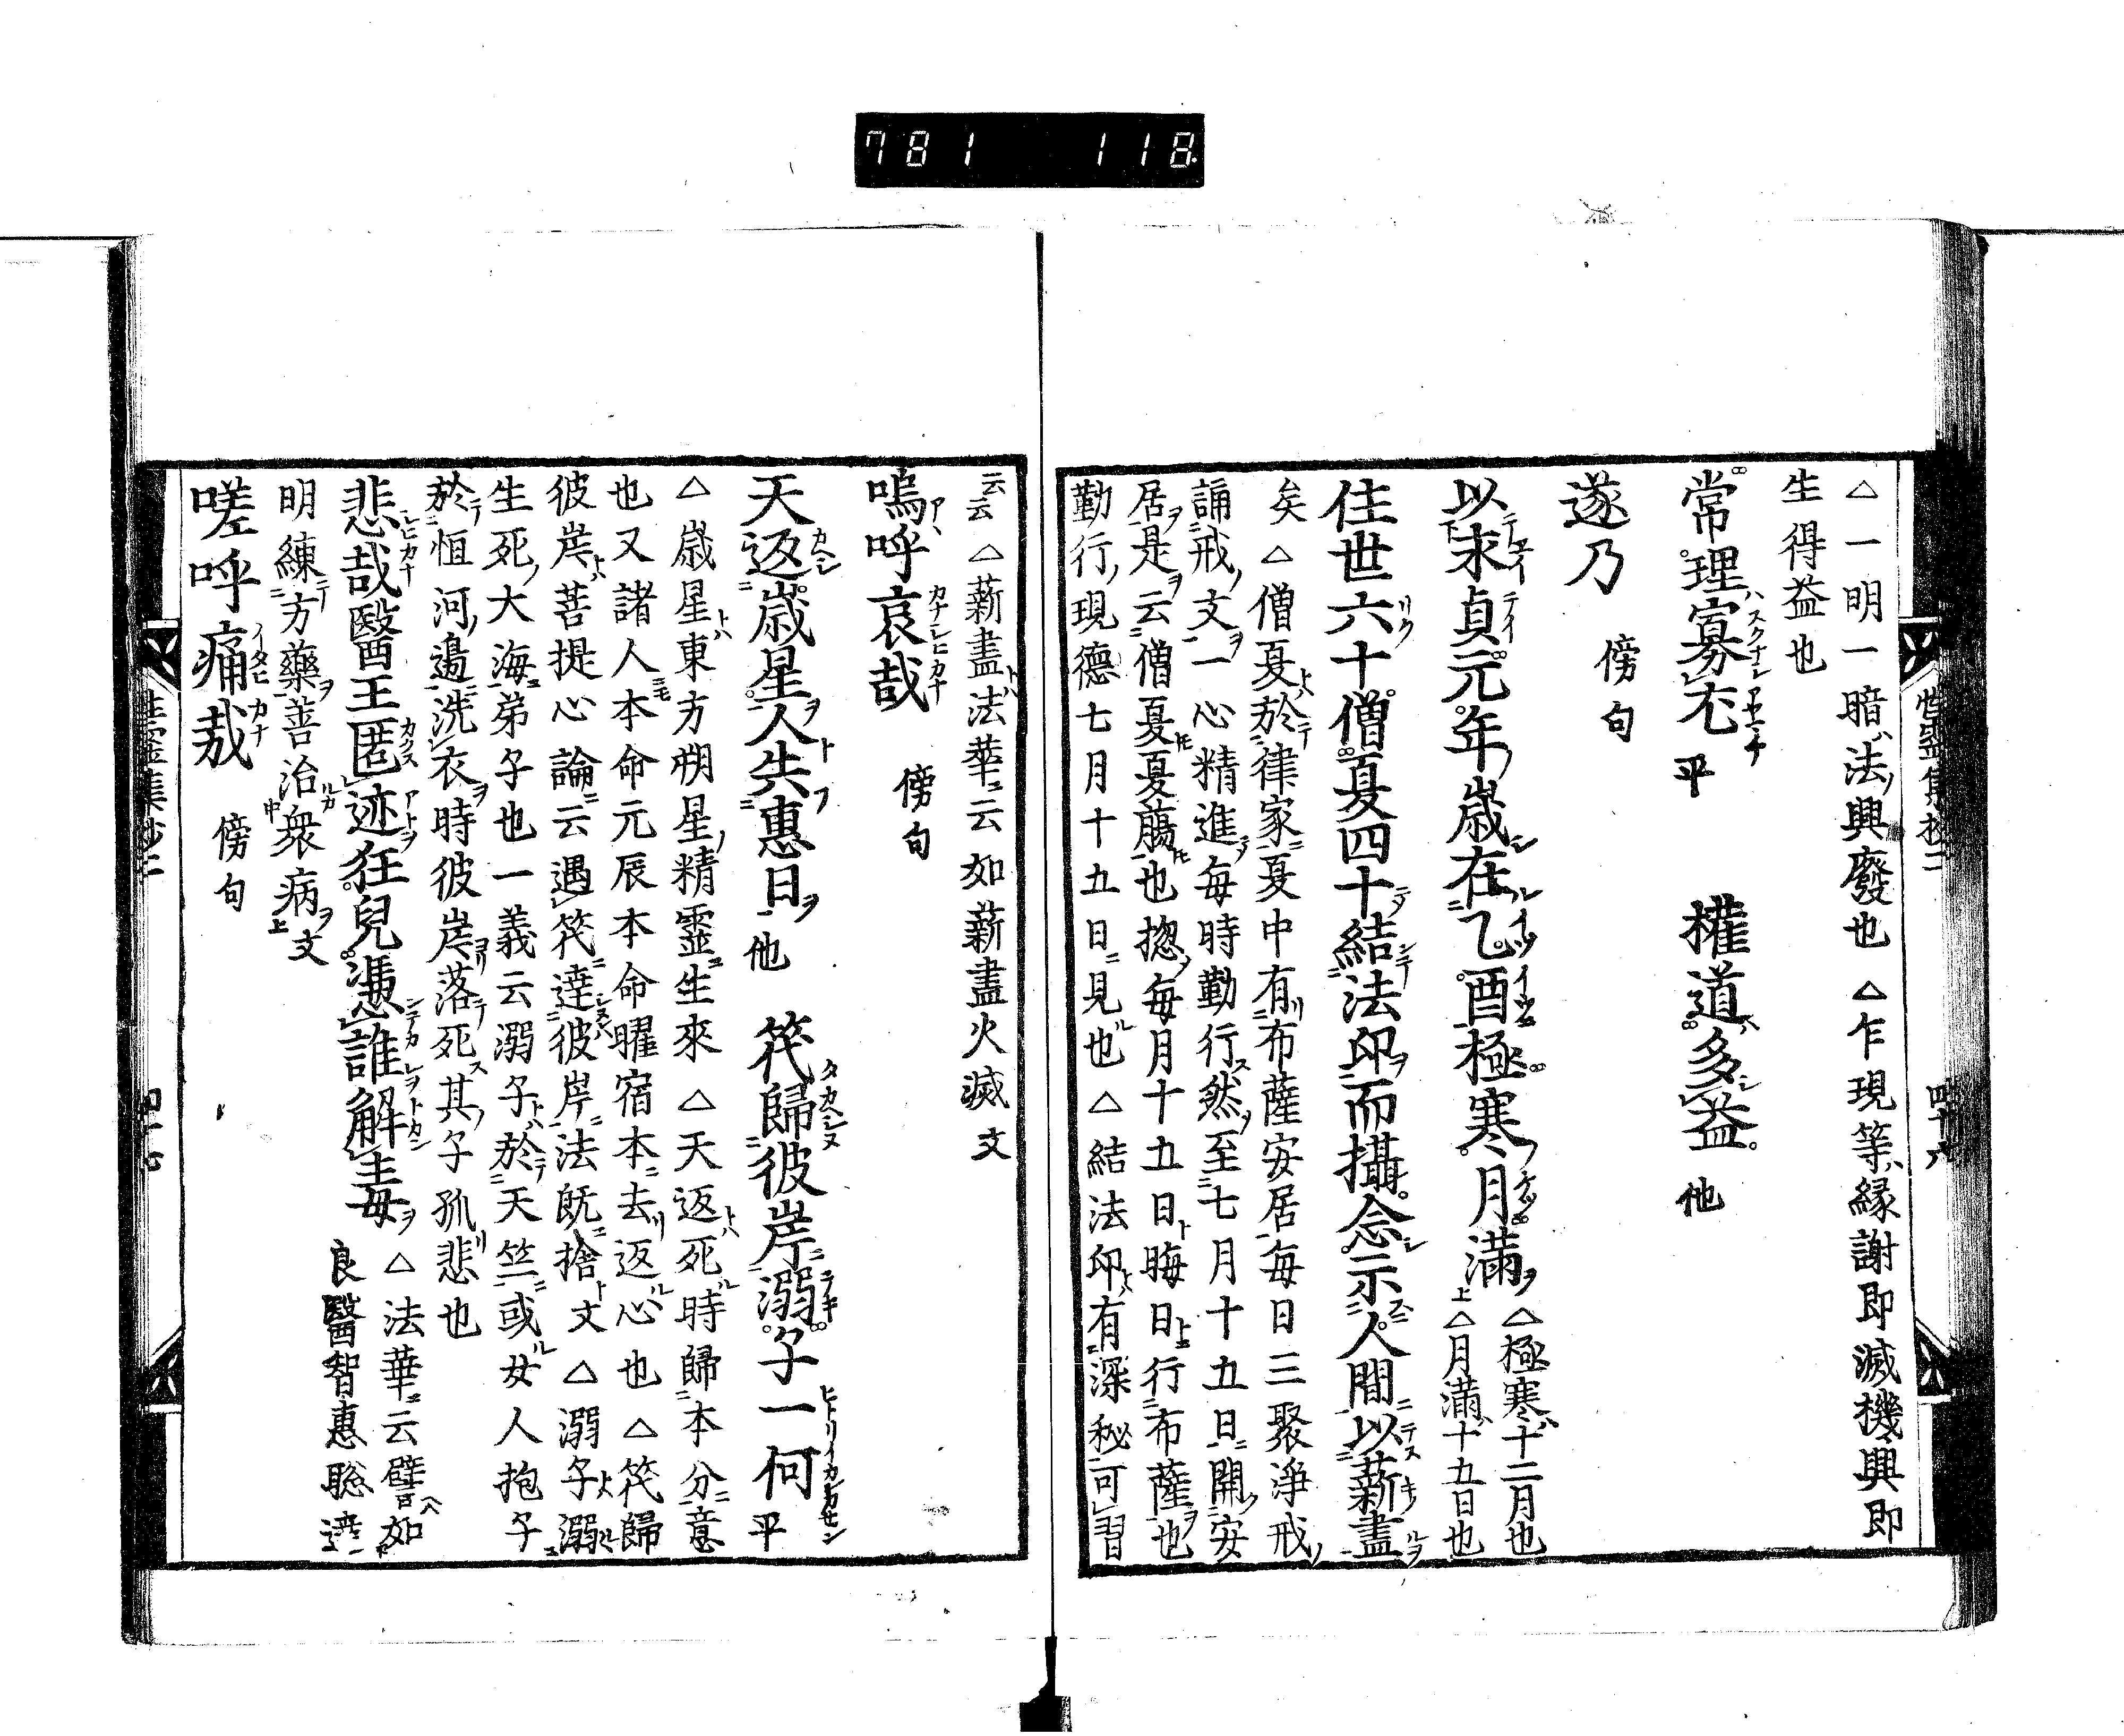 781 118
△一明一暗法興廢也 △乍現等縁謝即滅機興即
生得益也
常理寡不 平 權道多益 他
遂乃 傍句
以求貞元年歳在乙酉極寒月滿 △極寒十二月也
△月滿十五日也
住世六十僧夏四十結法印而攝念示人間以薪盡
矣 △僧夏於律家夏中有布薩安居毎日三聚淨戒
誦戒文一心精進毎時勤行然至七月十五日開安
居是云僧夏夏﨟也揔毎月十五日晦日行布薩也
勤行現德七月十五日見也 △結法印有深秘可習
四十六
云云 △薪盡法華云如薪盡火滅文
嗚呼哀哉 傍句
天返歳星人失惠日 他 筏歸彼岸溺子一何 平
△歳星東方朔星精靈生來 △天返死時歸本分意
也又諸人本命元辰本命曜宿本去返心也 △筏歸
彼岸菩提心論云遇筏達彼岸法既捨文 △溺子溺
生死大海弟子也一義云溺子於天竺或女人抱子
於恒河邉洗衣時彼岸落死其子孤悲也
悲哉醫王匿迹狂兒憑誰解毒 △法華云譬如
良醫智惠聡達
明練方藥善治衆病文
嗟呼痛哉 傍句
性靈集抄二